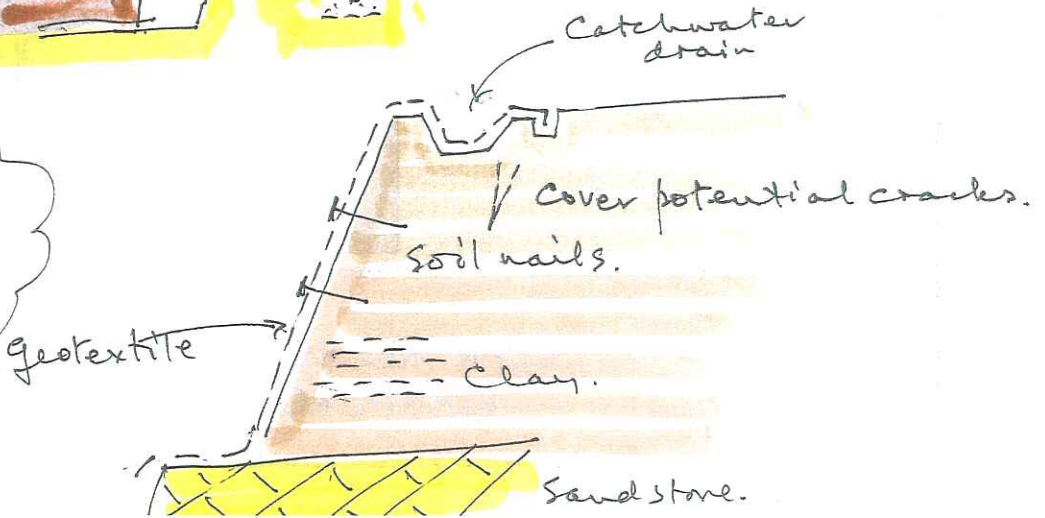 Catchwater
drain
Cover potential cracks.
Soil nails.
geotextile
Clay.
Sandstone.